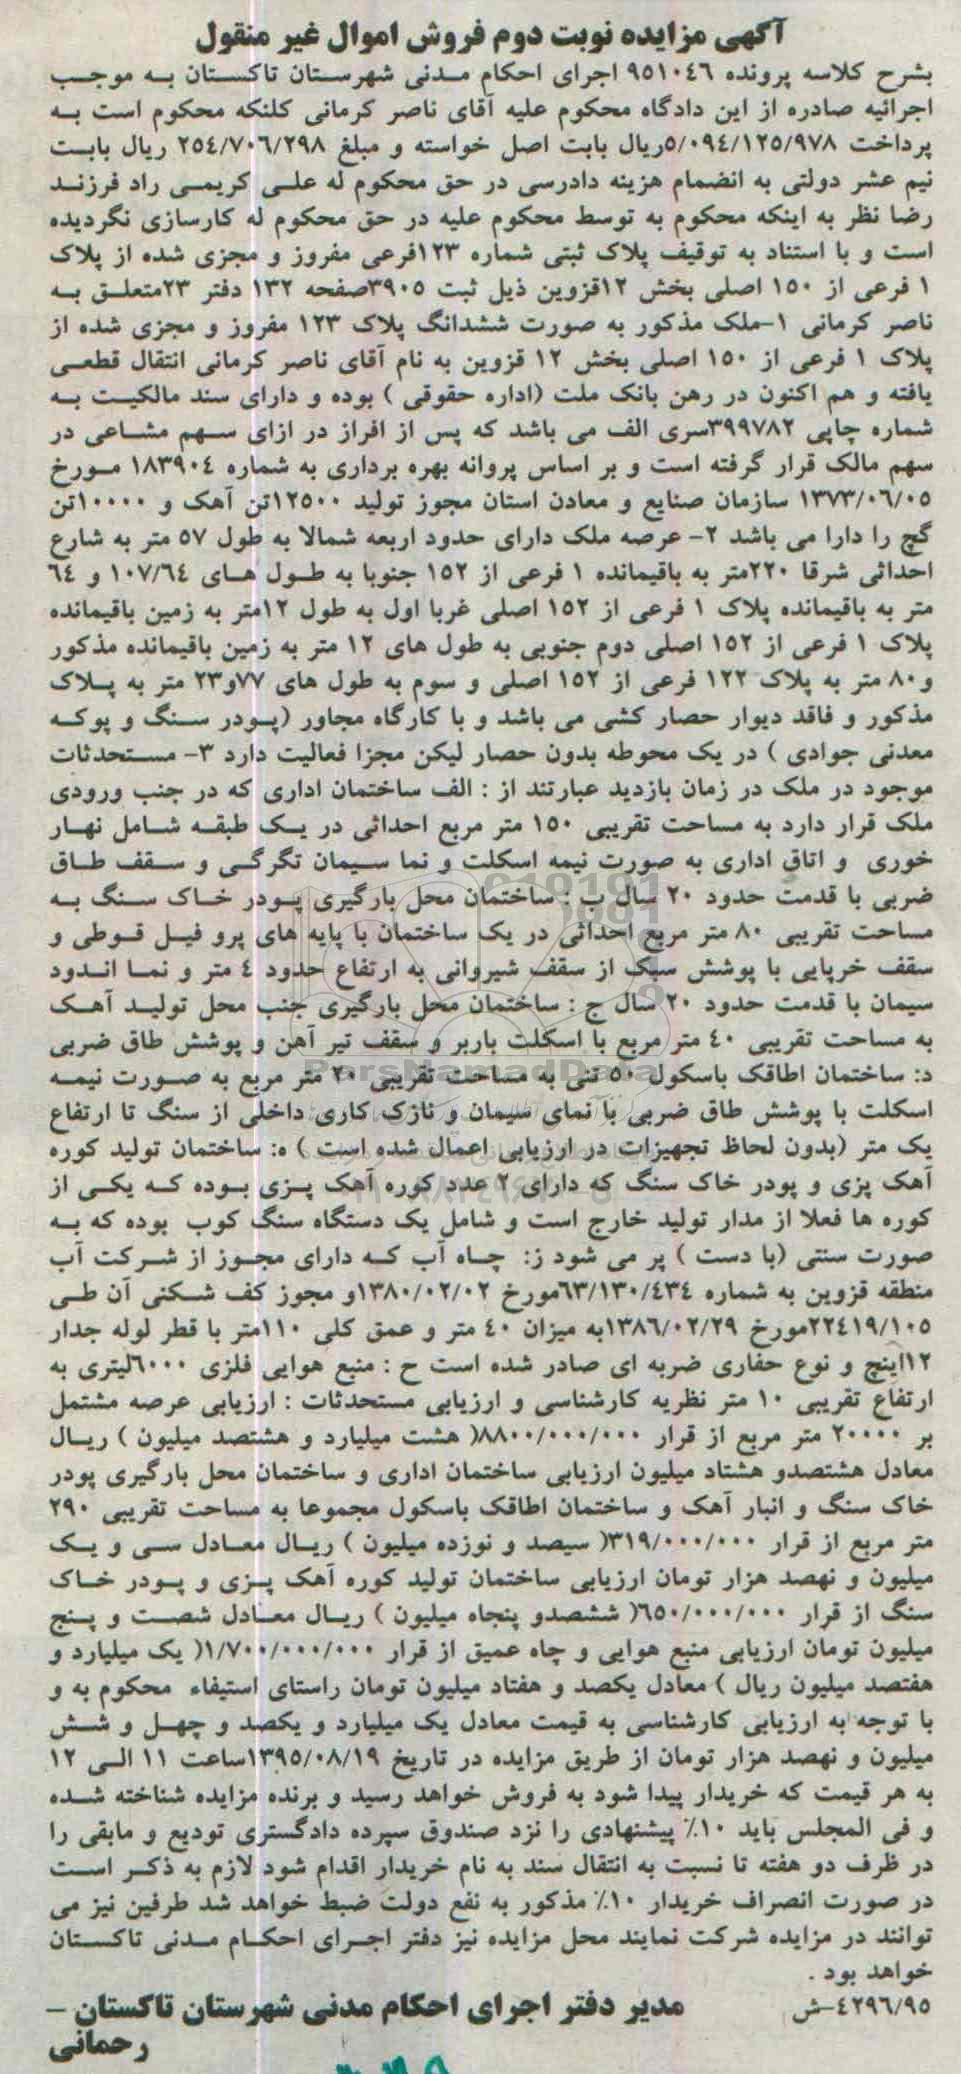 آگهی مزایده نوبت دوم فروش اموال غیر منقول
بشرح کلاسه پرونده ۹۵۱۰۴۶ اجرای احکام مدنی شهرستان تاکستان به موجب
اجرائیه صادره از این دادگاه محکوم علیه آقای ناصر کرمانی کلنکه محکوم است به
پرداخت ۵/۰۹۴/۱۲۵/۹۷۸ریال بابت اصل خواسته و مبلغ ۲۵۴/۷۰۶/۲۹۸ ریال بابت
نیم عشر دولتی به انضمام هزینه دادرسی در حق محکوم له علی کریمی راد فرزند
رضا نظر به اینکه محکوم به توسط محکوم علیه در حق محکوم له کارسازی نگردیده
است و با استناد به توقیف پلاک ثبتی شماره ۱۲۳فرعی مفروز و مجزی شده از پلاک
۱ فرعی از ۱۵۰ اصلی بخش ۱۲قزوین ذیل ثبت ۳۹۰۵صفحه ۱۳۲ دفتر ۲۳متعلق به
ناصر کرمانی ۱-ملک مذکور به صورت ششدانگ پلاک ۱۲۳ مفروز و مجزی شده از
پلاک ۱ فرعی از ۱۵۰ اصلی بخش ۱۲ قزوین به نام آقای ناصر کرمانی انتقال قطعی
یافته و هم اکنون در رهن بانک ملت (اداره حقوقی ) بوده و دارای سند مالکیت به
شماره چاپی ۳۹۹۷۸۲سری الف می باشد که پس از افراز در ازای سهم مشاعی در
سهم مالک قرار گرفته است و بر اساس پروانه بهره برداری به شماره ۱۸۳۹۰۴ مورخ
۱۳۷۳/۰۶/۰۵ سازمان صنایع و معادن استان مجوز تولید ۱۲۵۰۰تن آهک و ۱۰۰۰۰تن
گچ را دارا می باشد ۲- عرصه ملک دارای حدود اربعه شمالا به طول ۵۷ متر به شارع
احداثی شرقا ۲۲۰متر به باقیمانده ۱ فرعی از ۱۵۲ جنوبا به طول های ۱۰۷/۶۴ و ۶۴
متر به باقیمانده پلاک ۱ فرعی از ۱۵۲ اصلی غربا اول به طول ۱۲متر به زمین باقیمانده
پلاک ۱ فرعی از ۱۵۲ اصلی دوم جنوبی به طول های ۱۲ متر به زمین باقیمانده مذکور
و۸۰ متر به پلاک ۱۲۲ فرعی از ۱۵۲ اصلی و سوم به طول های ۷۷و۲۳ متر به پلاک
مذکور و فاقد دیوار حصار کشی می باشد و با کارگاه مجاور (پودر سنگ و پوکه
معدنی جوادی ) در یک محوطه بدون حصار لیکن مجزا فعالیت دارد ۳- مستحدثات
موجود در ملک در زمان بازدید عبارتند از : الف ساختمان اداری که در جنب ورودی
ملک قرار دارد به مساحت تقریبی ۱۵۰ متر مربع احداثی در یک طبقه شامل نهار
خوری و اتاق اداری به صورت نیمه اسکلت و نما سیمان تگرگی و سقف طاق
ضربی با قدمت حدود ۲۰ سال ب : ساختمان محل بارگیری پودر خاک سنگ به
مساحت تقریبی ۸۰ متر مربع احداثی در یک ساختمان با پایه های پرو فیل قوطی و
سقف خرپایی با پوشش سبک از سقف شیروانی به ارتفاع حدود ۴ متر و نما اندود
سیمان با قدمت حدود ۲۰ سال ج : ساختمان محل بارگیری جنب محل تولید آهک
به مساحت تقریبی ۴۰ متر مربع با اسکلت باربر و سقف تیر آهن و پوشش طاق ضربی
د: ساختمان اطاقک باسکول ۵۰ تنی به مساحت تقریبی ۲۰ متر مربع به صورت نیمه
اسکلت با پوشش طاق ضربی با نمای سیمان و نازک کاری داخلی از سنگ تا ارتفاع
یک متر (بدون لحاظ تجهیزات در ارزیابی اعمال شده است ) ه: ساختمان تولید کوره
آهک پزی و پودر خاک سنگ که دارای ۲ عدد کوره آهک پزی بوده که یکی از
کوره ها فعلا از مدار تولید خارج است و شامل یک دستگاه سنگ کوب بوده که به
صورت سنتی (با دست ) پر می شود ز: چاه آب که دارای مجوز از شرکت آب
منطقه قزوین به شماره ۶۳/۱۳۰/۴۳۴مورخ ۱۳۸۰/۰۲/۰۲و مجوز کف شکنی آن طی
۲۲۴۱۹/۱۰۵مورخ ۱۳۸۶/۰۲/۲۹به میزان ۴۰ متر و عمق کلی ۱۱۰متر با قطر لوله جدار
۱۲اینچ و نوع حفاری ضربه ای صادر شده است ح : منبع هوایی فلزی ۶۰۰۰لیتری به
ارتفاع تقریبی ۱۰ متر نظریه کارشناسی و ارزیابی مستحدثات : ارزیابی عرصه مشتمل
بر ۲۰۰۰۰ متر مربع از قرار ۸۸۰۰/۰۰۰/۰۰۰( هشت میلیارد و هشتصد میلیون ) ریال
معادل هشتصدو هشتاد میلیون ارزیابی ساختمان اداری و ساختمان محل بارگیری پودر
خاک سنگ و انبار آهک و ساختمان اطاقک باسکول مجموعا به مساحت تقریبی ۲۹۰
متر مربع از قرار ۳۱۹/۰۰۰/۰۰۰( سیصد و نوزده میلیون ) ریال معادل سی و یک
میلیون و نهصد هزار تومان ارزیابی ساختمان تولید کوره آهک پزی و پودر خاک
سنگ از قرار ۶۵۰/۰۰۰/۰۰۰( ششصدو پنجاه میلیون ) ریال معادل شصت و پنج
میلیون تومان ارزیابی منبع هوایی و چاه عمیق از قرار ۱/۷۰۰/۰۰۰/۰۰۰( یک میلیارد و
هفتصد میلیون ریال ) معادل یکصد و هفتاد میلیون تومان راستای استیفاء محکوم به و
با توجه به ارزیابی کارشناسی به قیمت معادل یک میلیارد و یکصد و چهل و شش
میلیون و نهصد هزار تومان از طریق مزایده در تاریخ ۱۳۹۵/۰۸/۱۹ساعت ۱۱ الی ۱۲
به هر قیمت که خریدار پیدا شود به فروش خواهد رسید و برنده مزایده شناخته شده
و فی المجلس باید ۱۰٪ پیشنهادی را نزد صندوق سپرده دادگستری تودیع و مابقی را
در ظرف دو هفته تا نسبت به انتقال سند به نام خریدار اقدام شود لازم به ذکر است
در صورت انصراف خریدار ۱۰٪ مذکور به نفع دولت ضبط خواهد شد طرفین نیز می
توانند در مزایده شرکت نمایند محل مزایده نیز دفتر اجرای احکام مدنی تاکستان
خواهد بود .
۴۲۹۶/۹۵-ش مدیر دفتر اجرای احکام مدنی شهرستان تاکستان –
رحمانی